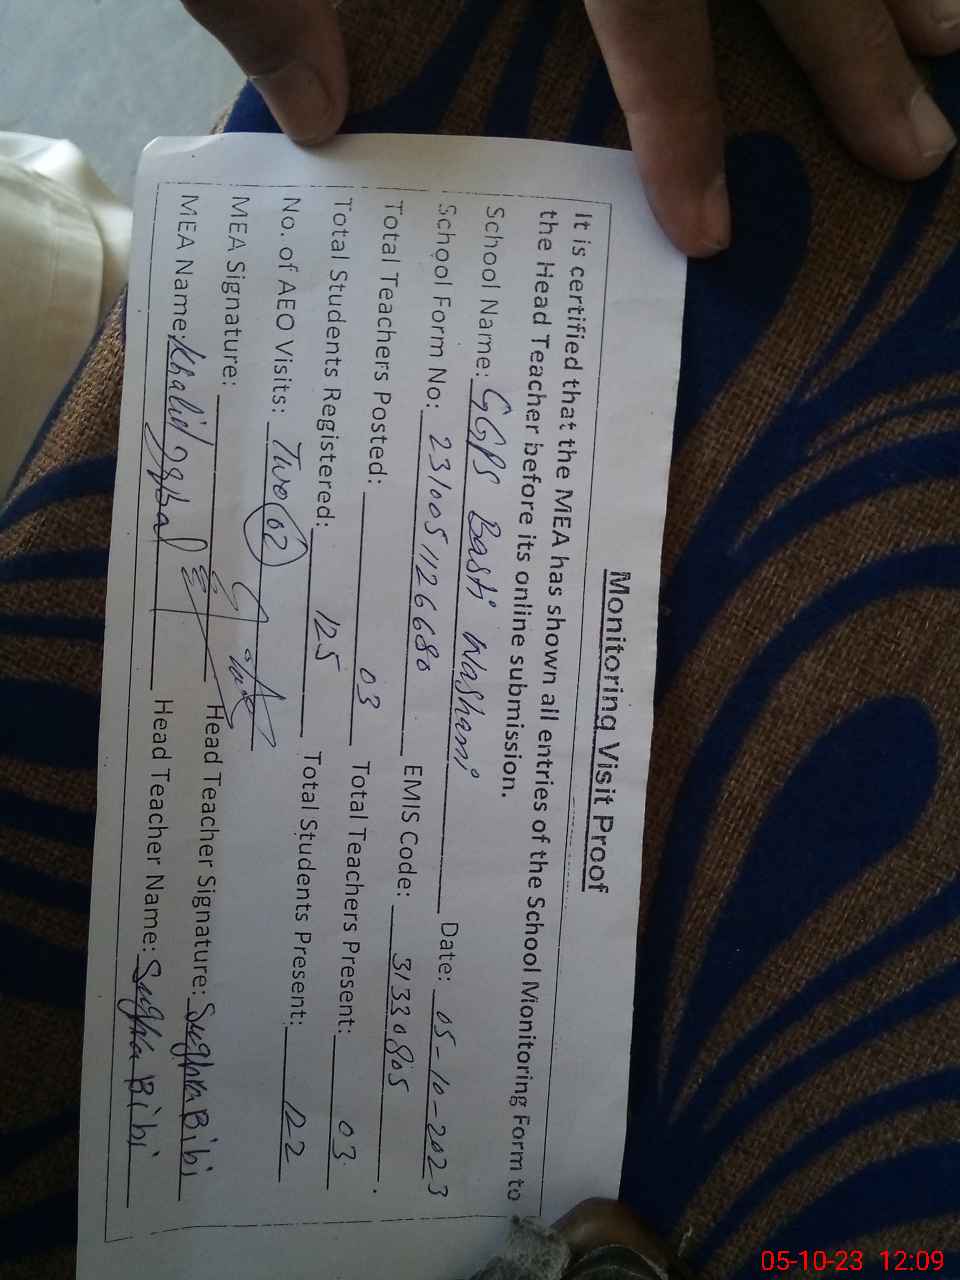 Monitoring Visit Proof
It is certified that the MEA has shown all entries of the School Monitoring Form to
the Head Teacher before its online submission.
School Name: GGPS Basti Washami Date: 05-10-2023
School Form No: 2310051126680 EMIS Code: 31330805
Total Teachers Posted: 03 Total Teachers Present: 03
Total Students Registered: 125 Total Students Present: 122
No. of AEO Visits: Two (02)
MEA Signature: Head Teacher Signature: Sughra Bibi
MEA Name: Khalid Iqbal Head Teacher Name: Sughra Bibi
05-10-23 12:09